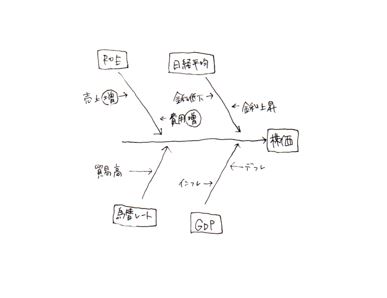 ROE
日経平均
売上増
金利低下
費用増
金利上昇
株価
貿易高
インフレ
デフレ
為替レート
GDP